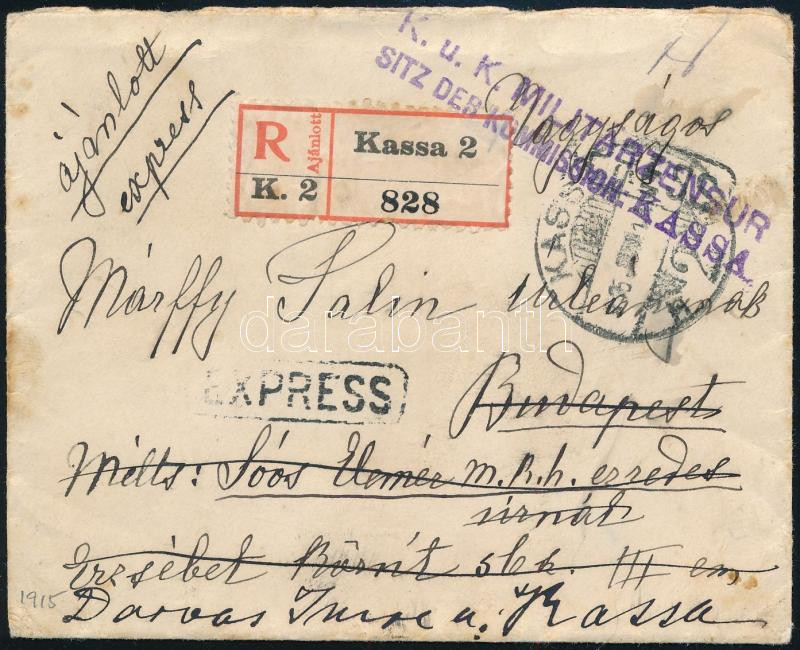 ajánlott
express
K. u. K. MILITÄRZENSUR
SITZ DER KOMMISSION KASSA
R Ajánlott Kassa 2
K. 2 828
Nagyságos
KASSA
Márffy Salin Urleánynak
darabanth
EXPRESS
Budapest
Mélts: Sóós Elemér m.k.h. ezredes
úrnál
Erzsébet Körút 56b. III em
Darvas Imre u. Kassa
1915